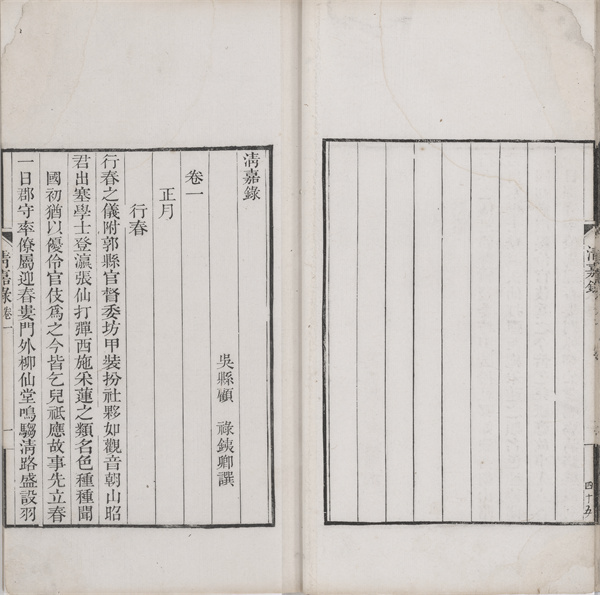 清嘉錄
四十五
清嘉錄
吳縣顧　祿鐵卿譔
卷一
正月
行春
行春之儀附郭縣官督委坊甲裝扮社夥如觀音朝山昭
君出塞學士登瀛張仙打彈西施采蓮之類名色種種聞
國初猶以優伶官伎爲之今皆乞兒祗應故事先立春
一日郡守率僚屬迎春婁門外柳仙堂鳴騶清路盛設羽
清嘉錄
卷一
一